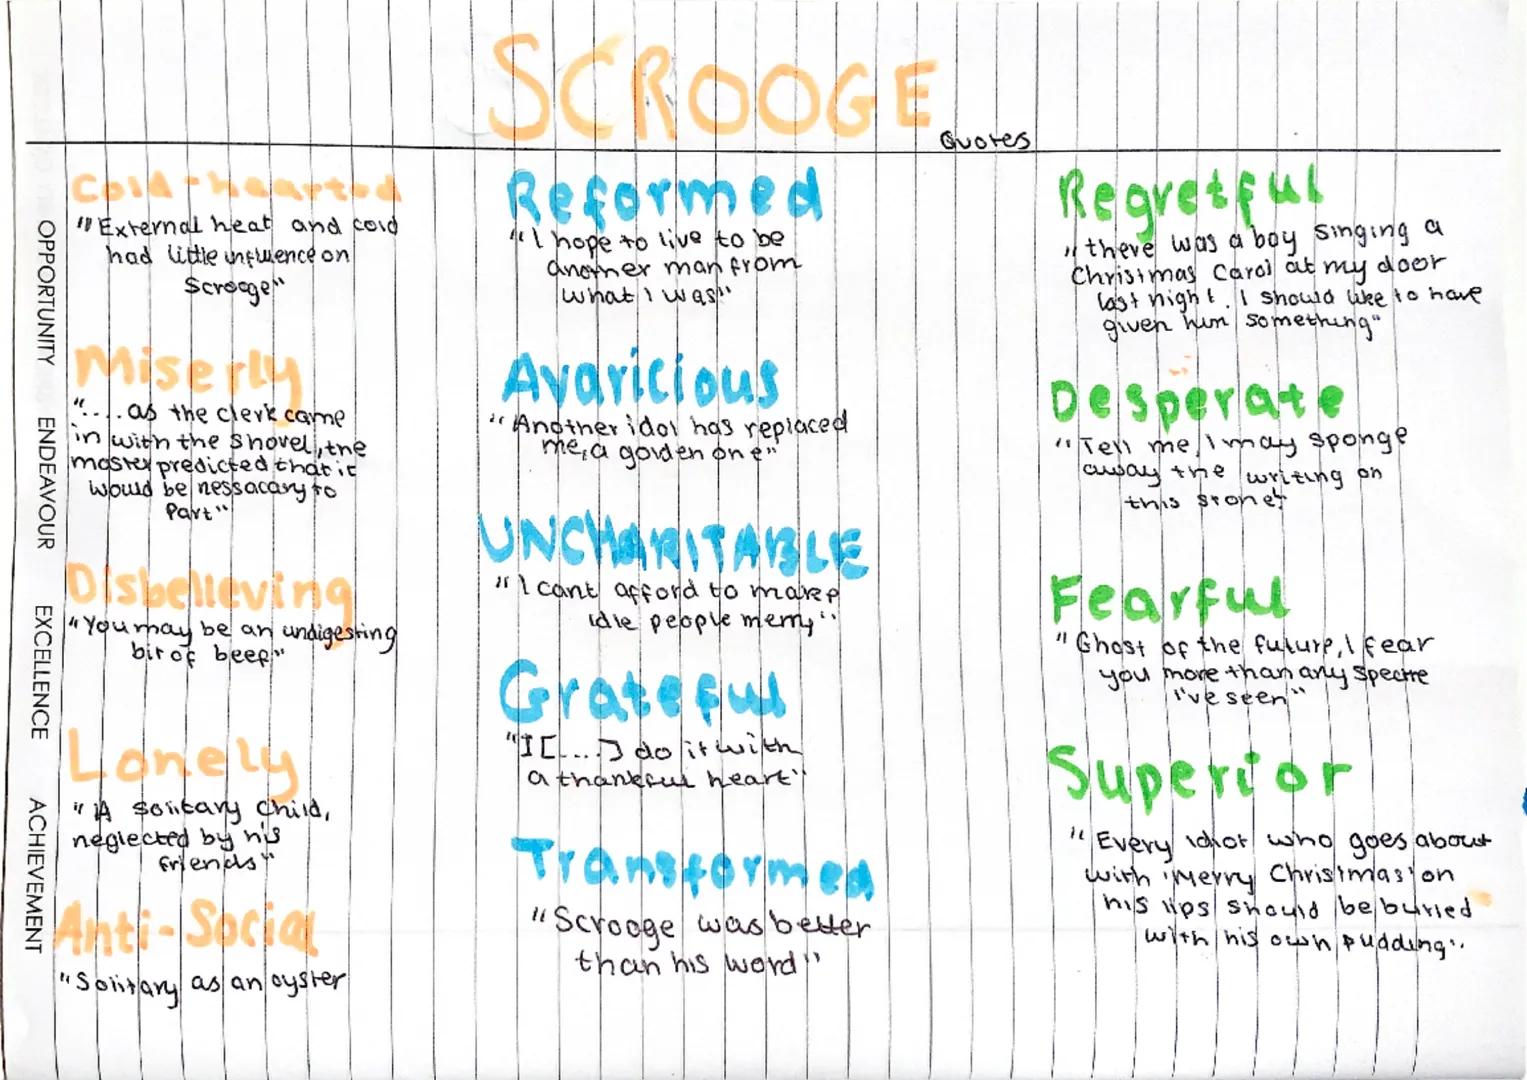 SCROOGE
Quotes
Cold-hearted
"External heat and cold
had little influence on
Scrooge"
Miserly
"....as the clerk came
in with the shovel, the
master predicted that it
would be nessacary to
Part"
Disbelieving
"You may be an undigesting
bit of beef"
Lonely
"A solitary child,
neglected by his
friends"
Anti-Social
"Solitary as an oyster
Reformed
"I hope to live to be
another man from
what I was"
Avaricious
"Another idol has replaced
me, a golden one"
UNCHARITABLE
"I cant afford to make
idle people merry"
Grateful
"I[....] do it with
a thankful heart"
Transformed
"Scrooge was better
than his word"
Regretful
"there was a boy singing a
Christmas Carol at my door
last night. I should like to have
given him something"
Desperate
"Tell me, I may sponge
away the writing on
this stone!"
Fearful
"Ghost of the future, I fear
you more than any spectre
I've seen"
Superior
"Every idiot who goes about
with 'Merry Christmas' on
his lips should be buried
with his own pudding".
OPPORTUNITY ENDEAVOUR EXCELLENCE ACHIEVEMENT